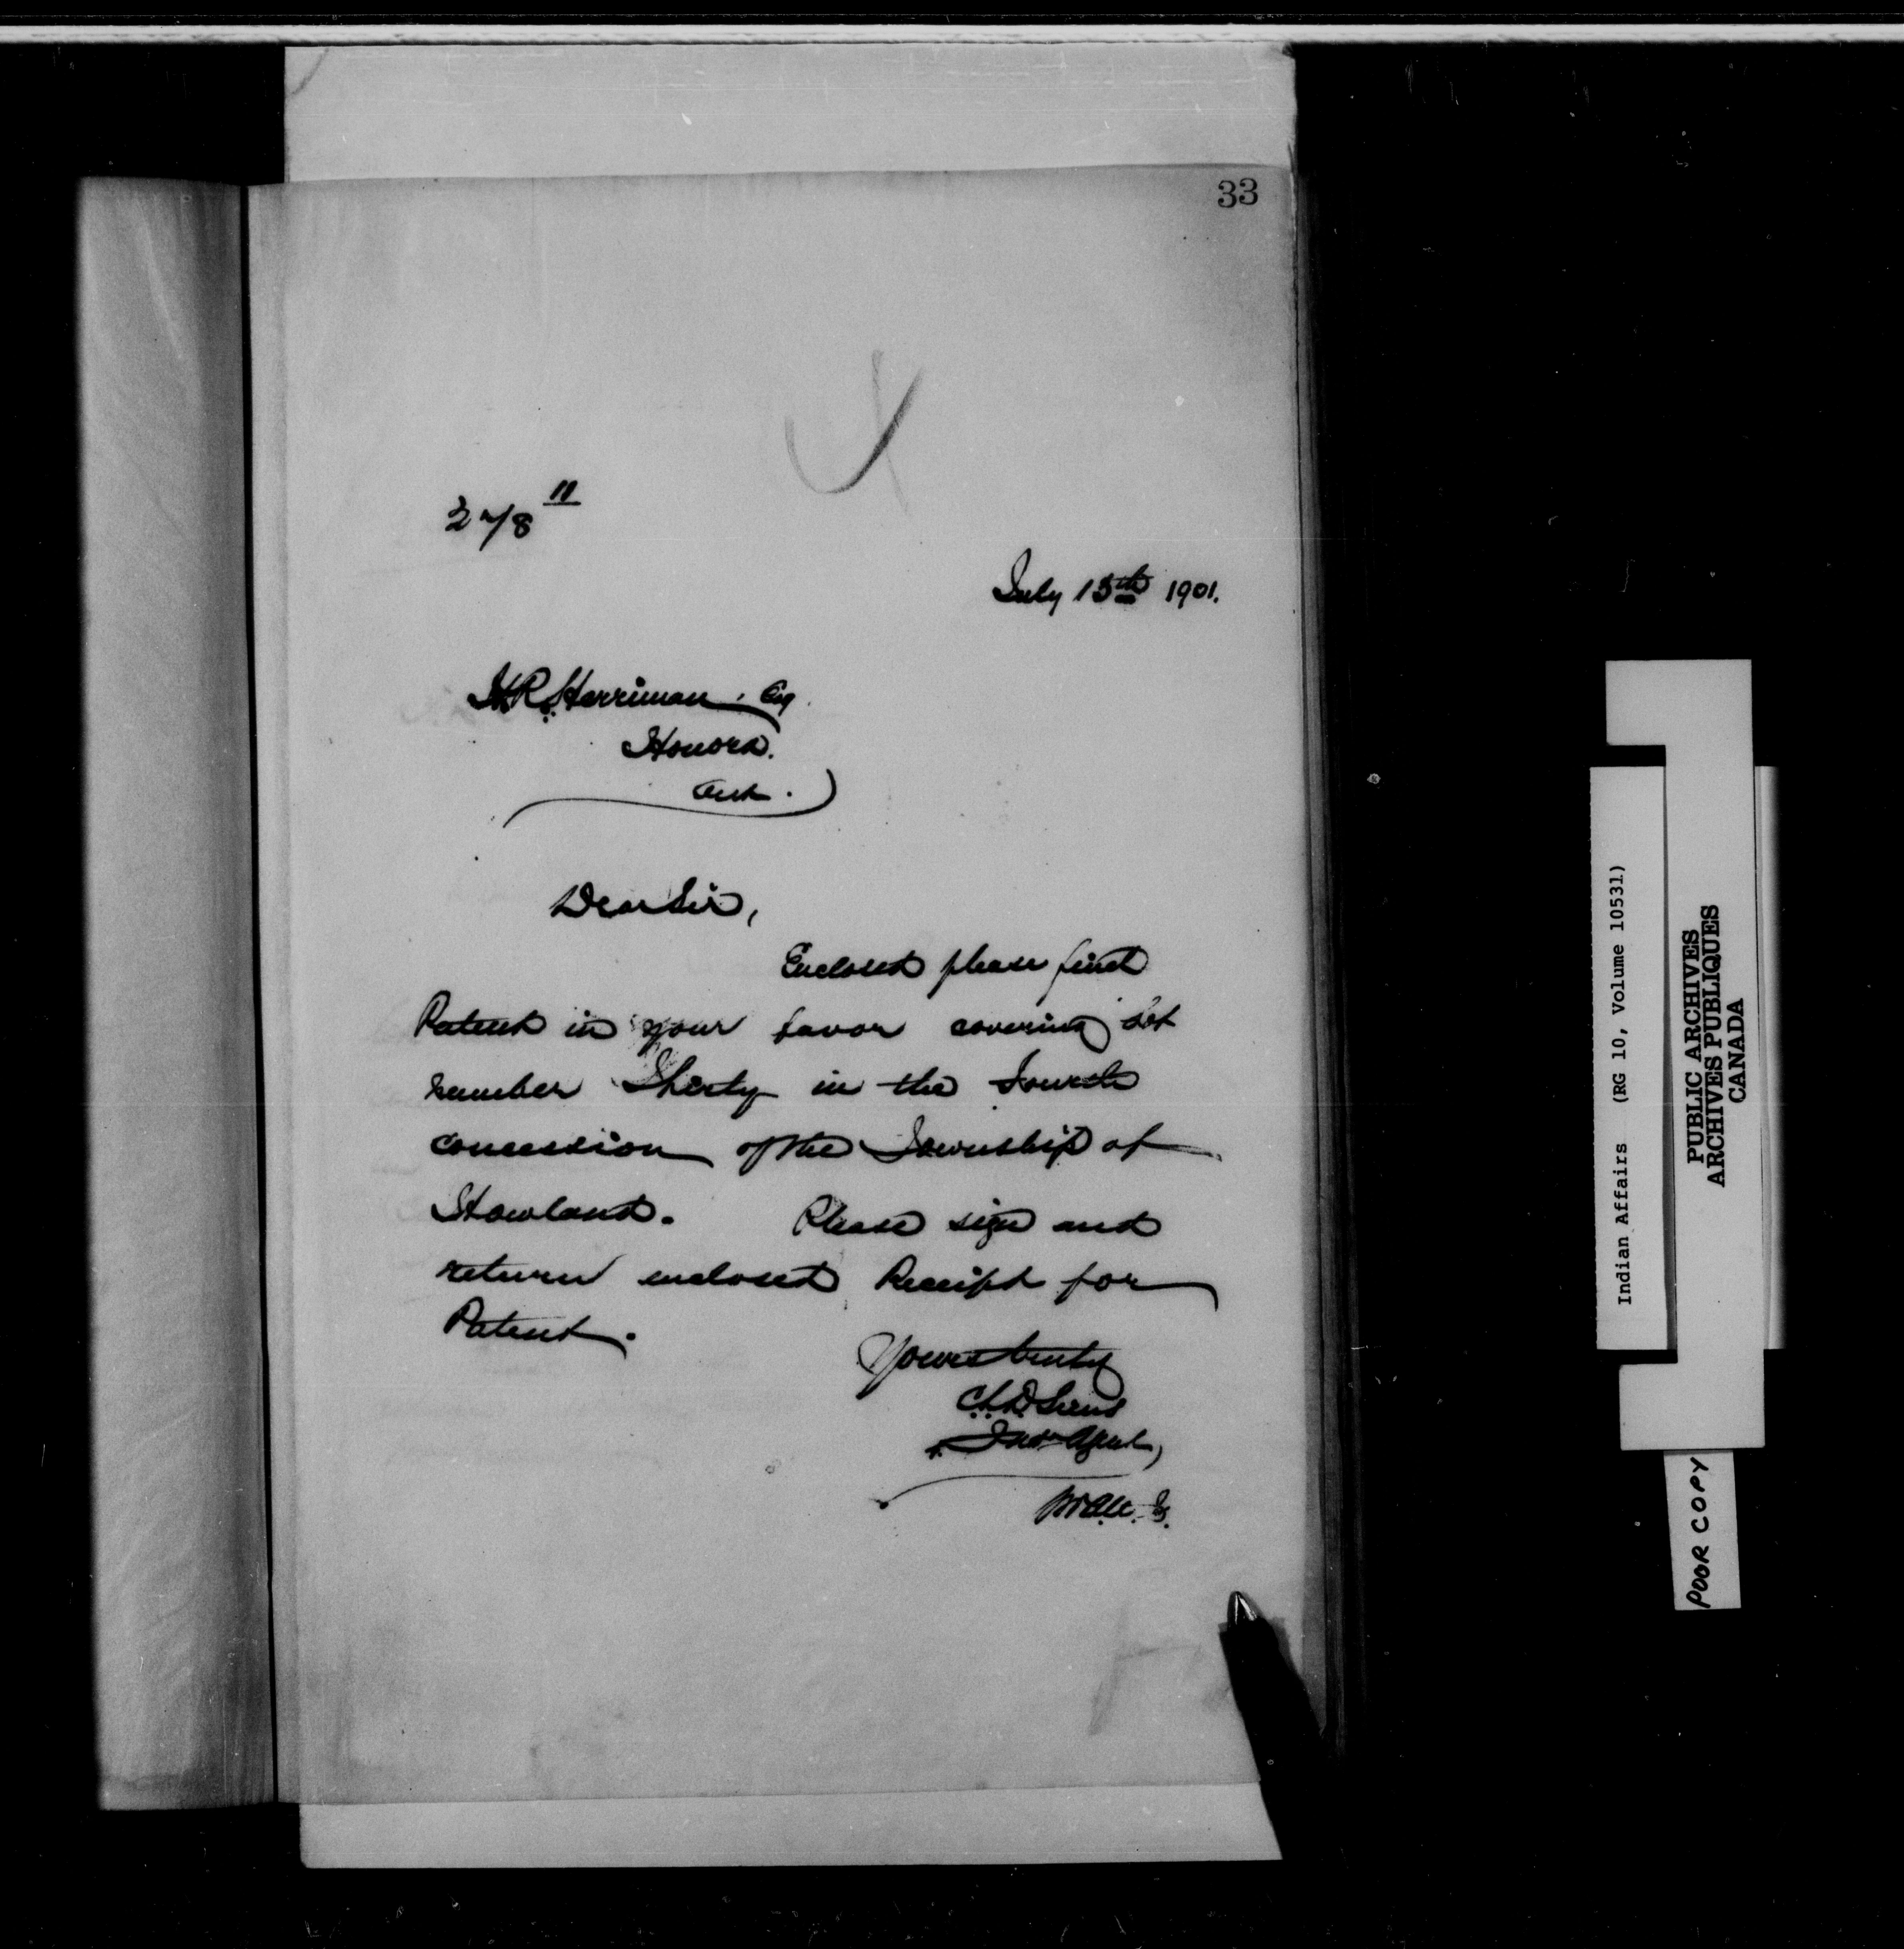 33
July 15th 1901.
H.R. Herriman, Esq.
Honora.
Ont.
Dear Sir,
Enclosed please find
Patent in your favor covering Lot
number Thirty in the Fourth
concession of the Township of
Howland. Please sign and
return enclosed Receipt for
Patent.
Yours truly
C.L.D. Sims
Indn Agent,
Indian Affairs (RG 10, Volume 10531)
PUBLIC ARCHIVES
ARCHIVES PUBLIQUES
CANADA
POOR COPY